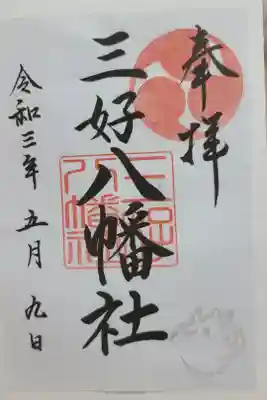 奉拝
三好八幡社
三好八幡社
令和三年 五月 九日